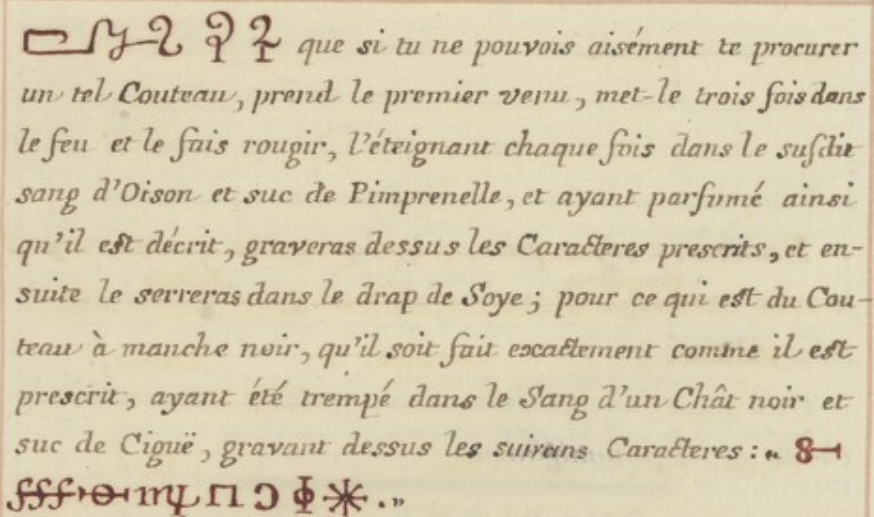 que si tu ne pouvois aisément te procurer
un tel Couteau, prend le premier venu, met-le trois fois dans
le feu et le fais rougir, l'éteignant chaque fois dans le susdit
sang d'Oison et suc de Pimprenelle, et ayant parfumé ainsi
qu'il est décrit, graveras dessus les Caracteres prescrits, et en-
suite le serreras dans le drap de Soye; pour ce qui est du Cou-
teau à manche noir, qu'il soit fait exactement comme il est
prescrit, ayant été trempé dans le Sang d'un Chât noir et
suc de Ciguë, gravant dessus les suivans Caracteres: «
.»